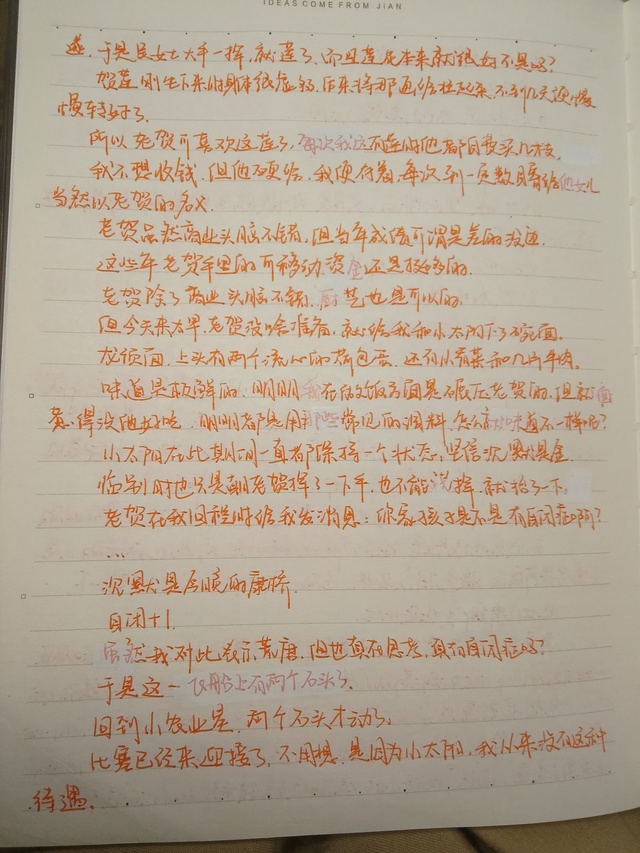 IDEAS COME FROM JIAN
于是民女士大手一挥，就莲了，而且莲花本来就很好不是吗？
贺莲刚生下来时身体很虚弱，后来将那画给挂起来，不到几天便慢
慢转好了。
所以老贺可喜欢这莲了，每次我这有莲时他都回要买几支。
我不想收钱，但他硬给，我便存着，每次到一定数目寄给他女儿
当然以老贺的名义。
老贺虽然商业头脑不错，但当年成绩可谓是差的没边
这些年老贺手里的可移动资金还是挺多的。
老贺除了商业头脑不错，厨艺也是可以的。
但今天来太早，老贺没啥准备，就给我和小太阳下了碗面。
龙须面，上头有两个流心的荷包蛋，还有小青菜和几片牛肉。
味道是极鲜的，明明我在做饭方面是碾压老贺的，但就面
煮得没他好吃，明明都是用那些常见的调料，怎么就味道不一样呢？
小太阳在此期间一直都保持一个状态，坚信沉默是金
临别时也只是朝老贺挥了一下手，也不能说挥，就抬了一下。
老贺在我回程时给我发消息：你家孩子是不是有自闭症啊？
...
沉默是后晚的康桥，
自闭+1.
虽然我对此表示荒唐，但也真在思考，真有自闭症吗？
于是这一飞船上有两个石头了。
回到小农业星，两个石头才动了，
比赛已经来迎接了，不用想，是因为小太阳，我从来没有这种
待遇。